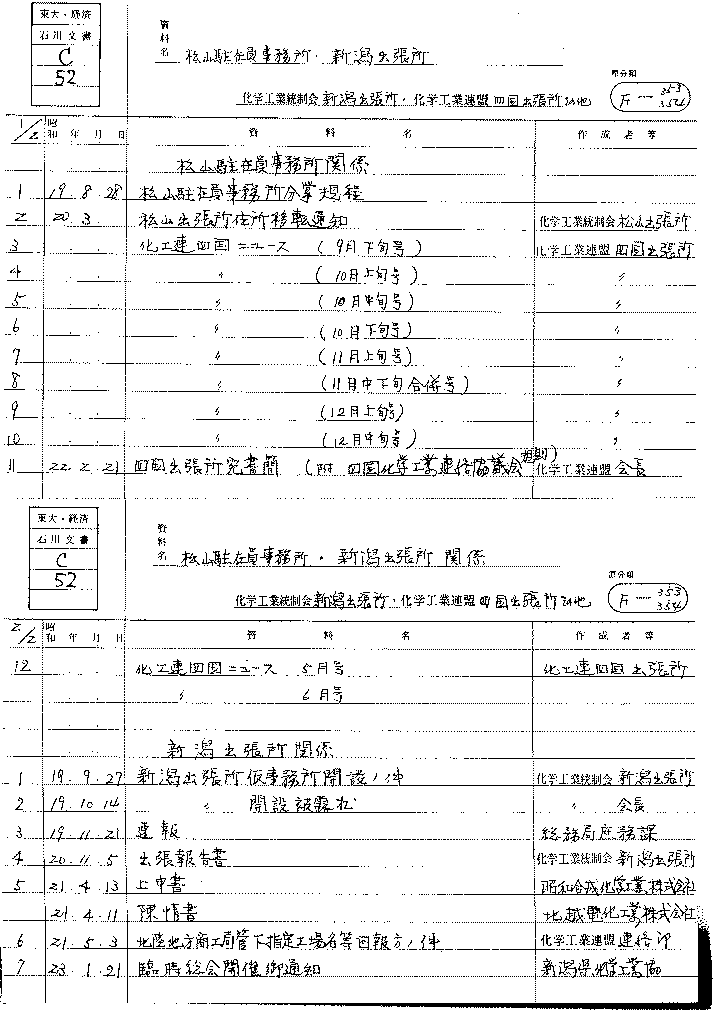 東大・経済
石川文書
C
52
資料名 松山駐在員事務所・新潟出張所
化学工業統制会 新潟出張所・化学工業連盟 四国出張所 她
原分類 F-353 354
1/2 昭和 年 月 日 資料名 作成者等
松山駐在員事務所関係
1 19. 8. 28 松山駐在員事務所分業規程
2 20. 3. 松山出張所住所移転通知 化学工業統制会 松山出張所
3 化工連四国ニュース (9月下旬号) 化学工業連盟 四国出張所
4 〃 (10月上旬号) 〃
5 〃 (10月中旬号) 〃
6 〃 (10月下旬号) 〃
7 〃 (11月上旬号) 〃
8 〃 (11月中下旬合併号) 〃
9 〃 (12月上旬号) 〃
10 〃 (12月中旬号) 〃
11 22. 2. 21 四国出張所宛書簡 (附 四国化学工業連絡協議会規則) 化学工業連盟 会長
東大・経済
石川文書
C
52
資料名 松山駐在員事務所・新潟出張所関係
化学工業統制会 新潟出張所・化学工業連盟 四国出張所
原分類 F-353 354
2/2 昭和 年 月 日 資料名 作成者等
12 化工連四国ニュース 5月号 化工連四国出張所
〃 6月号
新潟出張所関係
1 19. 9. 27 新潟出張所仮事務所開設ノ件 化学工業統制会 新潟出張所
2 19. 10. 14 〃 開設披露 〃 会長
3 19. 11. 21 電報 総務局庶務課
4 20. 11. 5 出張報告書 化学工業統制会 新潟出張所
5 21. 4. 13 上申書 昭和合成化学工業株式会社
21. 4. 11 陳情書 北越電化工業株式会社
6 21. 5. 3 北陸地方商工局管下指定工場名等回報方ノ件 化学工業連盟 連絡
7 23. 1. 21 臨時総会開催御通知 新潟県化学工業協